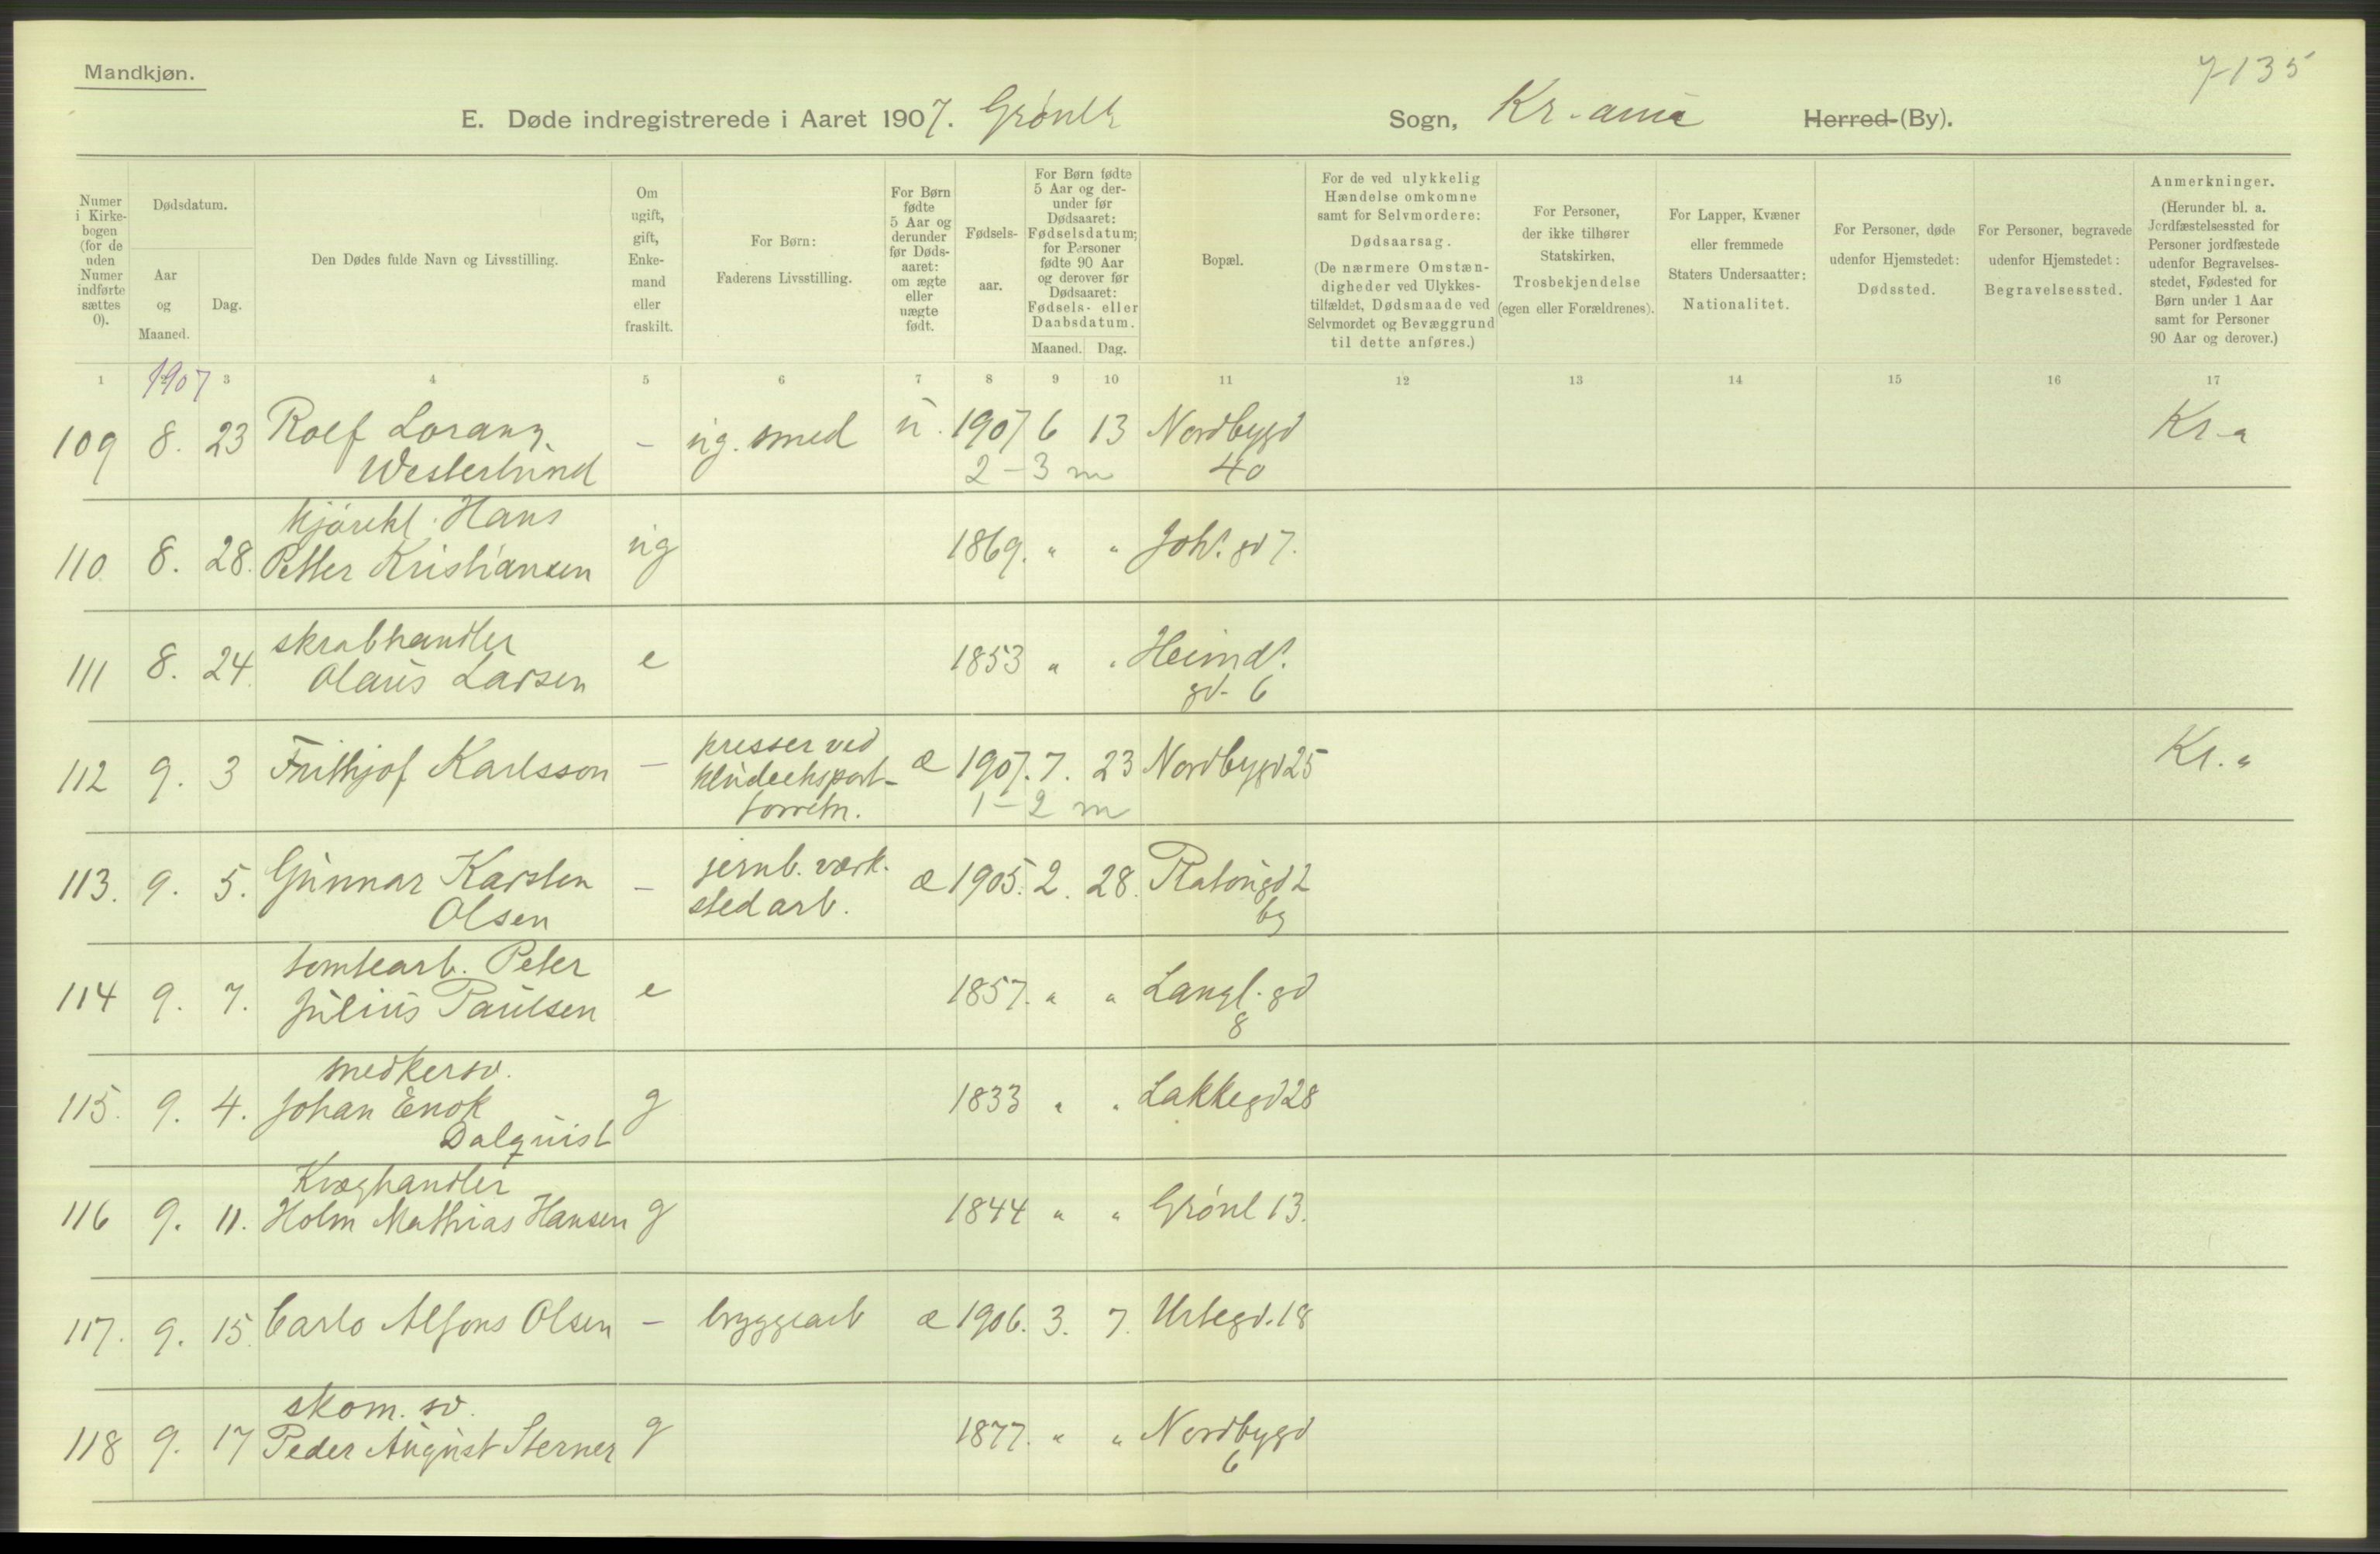 Mandkjøn.
7-135
E. Døde indregistrerede i Aaret 1907. Grønlk Sogn, Kr.ania Herred (By).
Numer i Kirkebogen (for de uden Numer indførte sættes 0).
Dødsdatum.
Aar og Maaned.
Dag.
Den Dødes fulde Navn og Livsstilling.
Om ugift, gift, Enkemand eller fraskilt.
For Børn: Faderens Livsstilling.
For Børn fødte 5 Aar og derunder før Dødsaaret: om ægte eller uægte født.
Fødselsaar.
For Børn fødte 5 Aar og derunder før Dødsaaret: Fødselsdatum; for Personer fødte 90 Aar og derover før Dødsaaret: Fødsels- eller Daabsdatum.
Maaned. Dag.
Bopæl.
For de ved ulykkelig Hændelse omkomne samt for Selvmordere: Dødsaarsag. (De nærmere Omstændigheder ved Ulykkestilfældet, Dødsmaade ved Selvmordet og Bevæggrund til dette anføres.)
For Personer, der ikke tilhører Statskirken, Trosbekjendelse (egen eller Forældrenes).
For Lapper, Kvæner eller fremmede Staters Undersaatter: Nationalitet.
For Personer, døde udenfor Hjemstedet: Dødssted.
For Personer, begravede udenfor Hjemstedet: Begravelsessted.
Anmerkninger. (Herunder bl. a. Jordfæstelsessted for Personer jordfæstede udenfor Begravelsesstedet, Fødested for Børn under 1 Aar samt for Personer 90 Aar og derover.)
1 1907 3 4 5 6 7 8 9 10 11 12 13 14 15 16 17
109 8. 23 Rolf Lorang - ug. smed u. 1907 6 13 Nordbygd Kr-a
Westerlund 2-3 m 40
kjørekl. Hans
110 8. 28. Petter Kristiansen ug 1869. " " Joh's. gd 7.
skrabhandler
111 8. 24. Olaus Larsen e 1853 " " Heimd's.
gd. 6
presser ved
112 9. 3 Frithjof Karlsson - kludeeksport- æ 1907. 7. 23 Nordbygd 25 Kr. a
forretn. 1-2 m
113. 9. 5. Gunnar Karsten - jernb. værk- æ 1905. 2. 28. Platougd 2
Olsen sted arb. bg
tomtearb. Peter
114 9. 7. Julius Paulsen e 1857. " " Langl. gd
8
snedkersv.
115. 9. 4. Johan Enok g 1833 " " Lakkegd 28
Dalquist
Kvæghandler
116 9. 11. Holm Mathias Hansen g 1844 " " Grønl 13.
117. 9. 15. Carlo Alfons Olsen - bryggearb æ 1906. 3. 7. Urtegd. 18
skom. sv.
118 9. 17 Peder August Sterner g 1877. " " Nordbygd
6